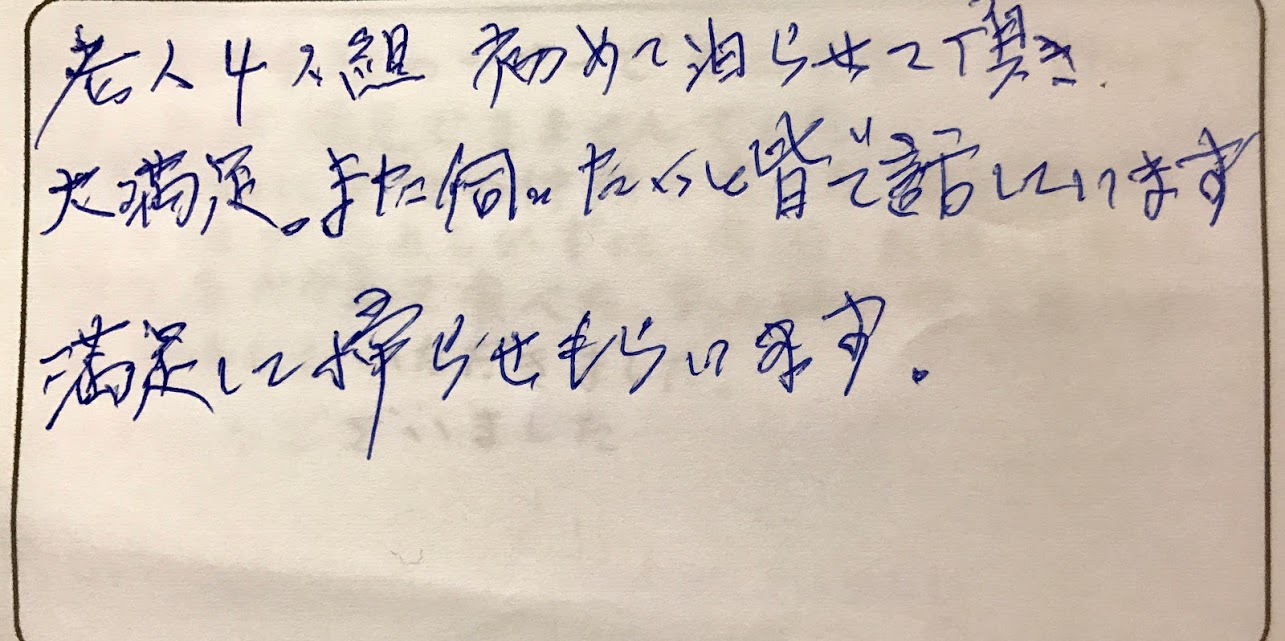 老人4人組 初めて泊らせて頂き
大満足。また伺いたいと皆で話しています
満足して帰らせもらいます。